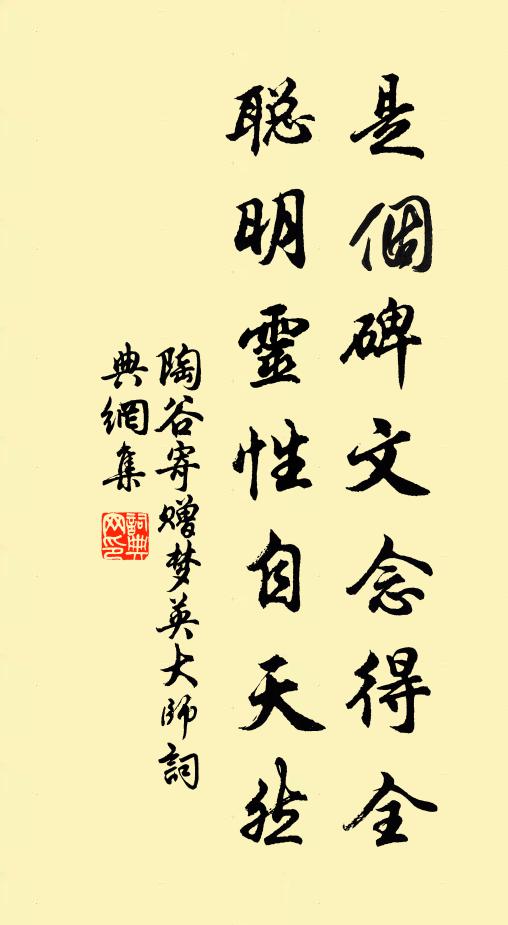 是個碑文念得全
聰明靈性自天然
陶谷寄贈梦英大師詞
典網集
詞典
网印